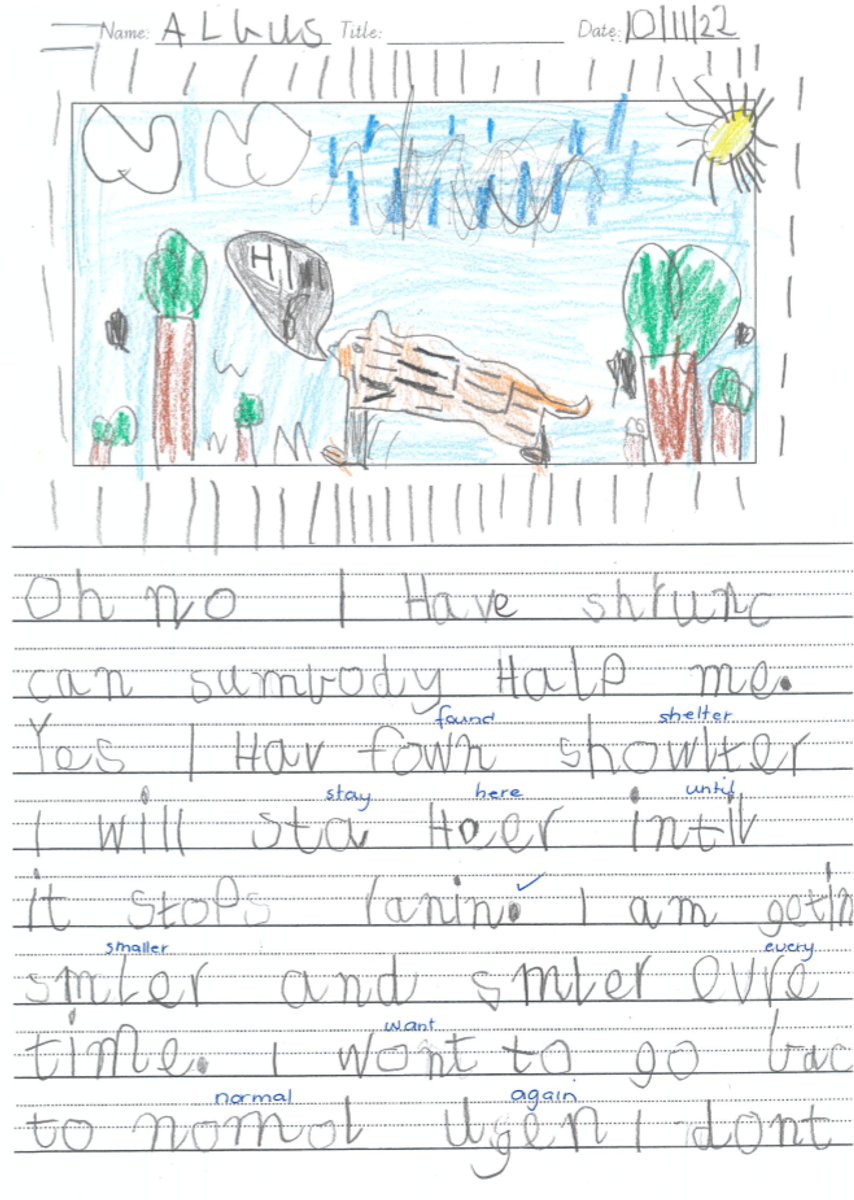 Name: ALbus Title: Date: 10/11/22
HI
Oh no I Have shrunc
can sumbody Halp me.
found shelter
Yes I Hav fown showlter
stay here until
I will sta Heer intil
it stops ranin. I am getin
smaller every
smler and smler evre
time. I wont to go bac
want
normal again
to nomol ugen I dont